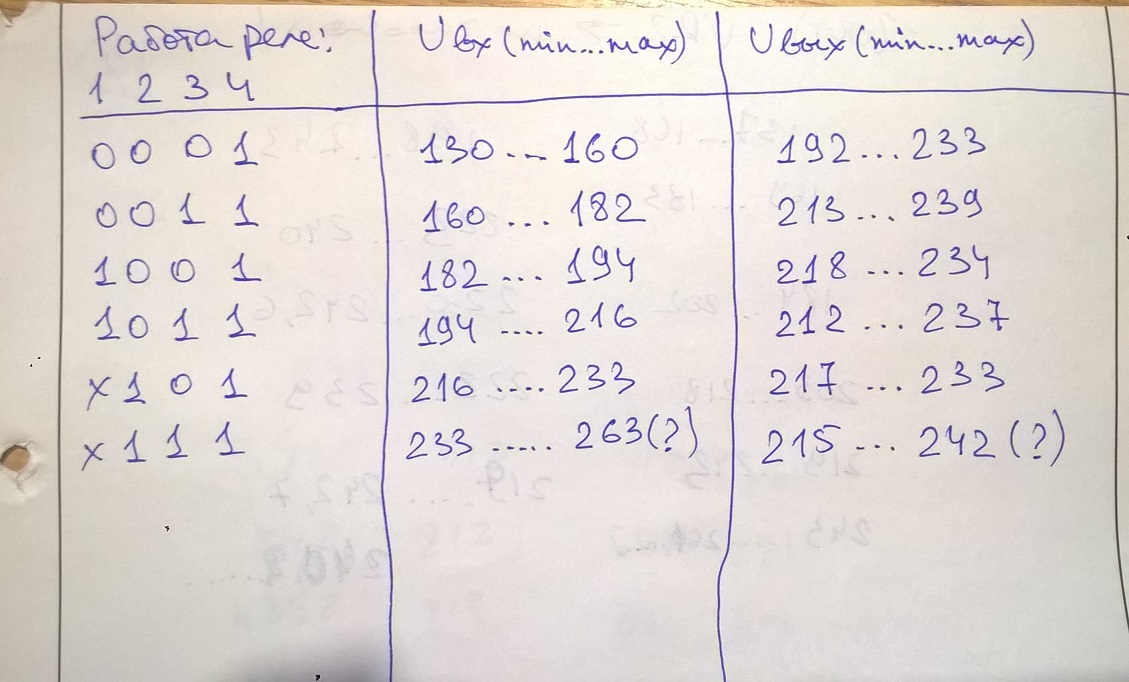 Работа реле: Uвх (min...max) Uвых (min...max)
1 2 3 4
0 0 0 1 130...160 192...233
0 0 1 1 160...182 213...239
1 0 0 1 182...194 218...234
1 0 1 1 194....216 212...237
x 1 0 1 216....233 217...233
x 1 1 1 233.....263(?) 215...242(?)